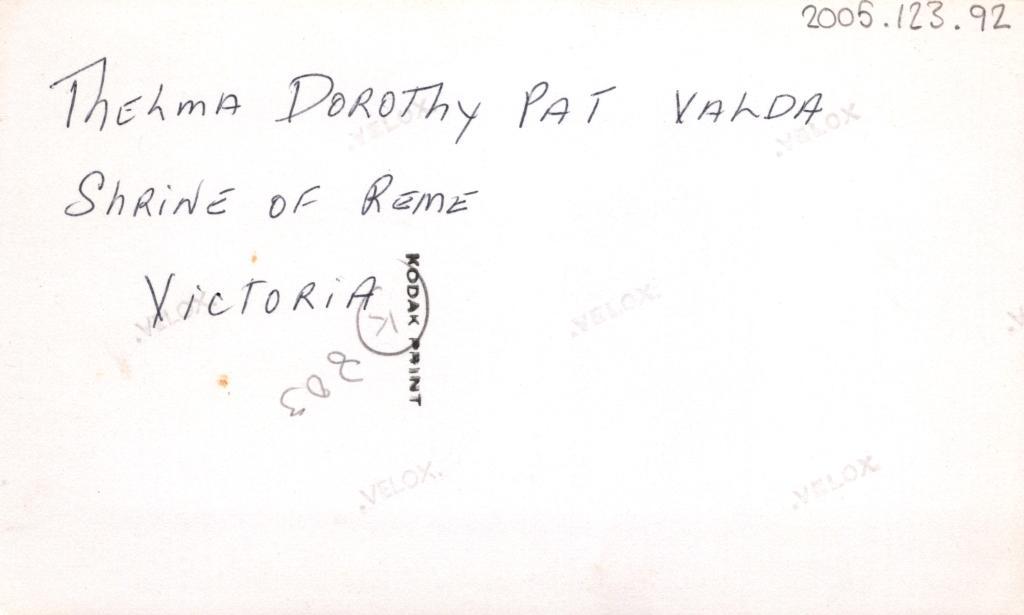 2005.123.92
Thelma Dorothy Pat Valda
Shrine of Reme
Victoria
KODAK PRINT
K
203
VELOX.
VELOX.
VELOX.
VELOX.
VELOX.
VELOX.